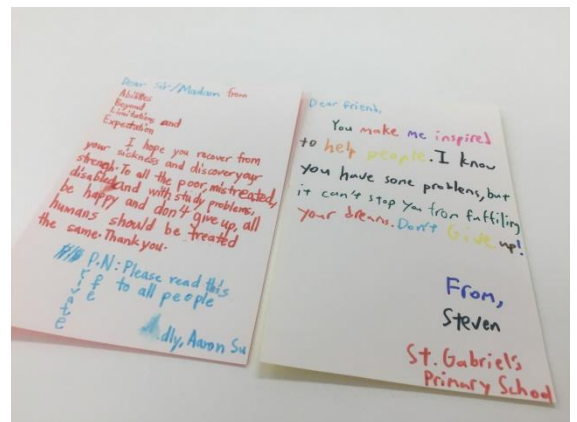 Dear Sir/Madam from
Abilities
Beyond
Limitations and
Expectation
I hope you recover from
your sickness and discover your
strengh. To all the poor, mistreated,
disabled and with study problems,
be happy and don't give up, all
humans should be treated
the same. Thank you.
P.N: Please read this
to all people
Aaron Su
Dear friend,
You make me inspired
to help people. I know
you have some problems, but
it can't stop you from fulfiling
your dreams. Don't Give up!
From,
Steven
St. Gabriel's
Primary School